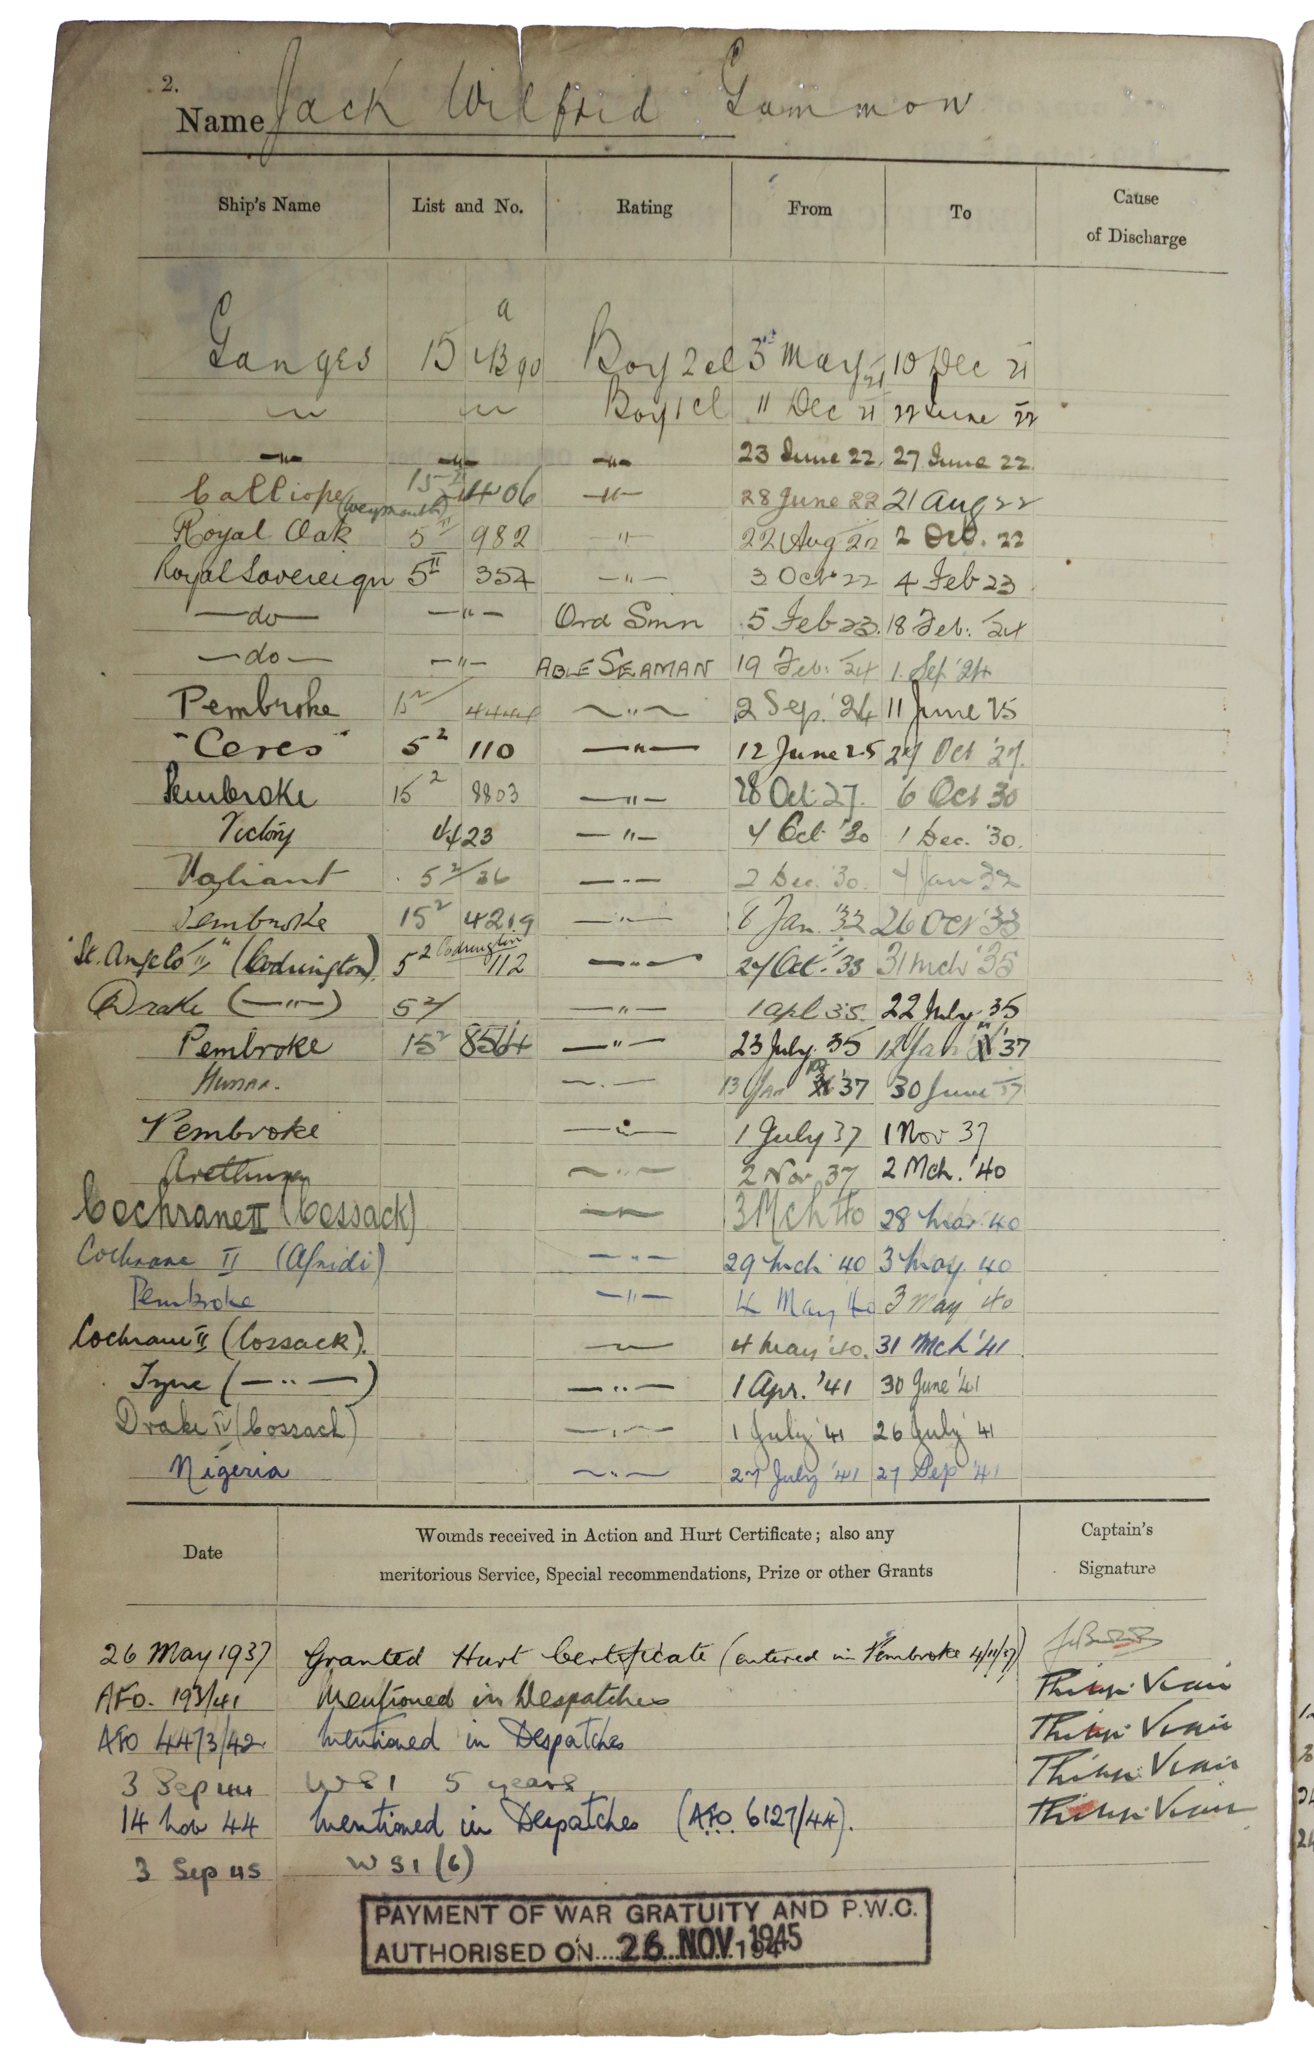 2.
Name Jack Wilfrid Gammon
Ship's Name List and No. Rating From To Cause of Discharge
Ganges 15 a Boy 2 cl 3 May 21 10 Dec 21
" " Boy 1 cl 11 Dec 21 22 June 22
" " " 23 June 22 27 June 22
Calliope (Weymouth) 15 II 1406 " 28 June 22 21 Aug 22
Royal Oak 5 II 982 " 22 Aug 22 2 Oct. 22
Royal Sovereign 5 II 354 " 3 Oct 22 4 Feb 23
—do— " Ord Smn 5 Feb 23 18 Feb. '24
—do— " ABLE SEAMAN 19 Feb. '24 1 Sep '24
Pembroke 15² " 2 Sep. '24 11 June 25
"Ceres" 5² 110 " 12 June 25 27 Oct '27
Pembroke 15² 8803 " 28 Oct 27 6 Oct 30
Victory 4423 " 7 Oct '30 1 Dec. '30.
Valiant 5²/36 " 2 Dec. '30. 7 Jan 32
Pembroke 15² 4219 " 8 Jan. '32 26 Oct '33
"St. Angelo II" (Codrington) 5² Codrington 112 " 27 Oct. '33 31 Mch '35
Drake (—"—) 5²/ " 1 Apl 35. 22 July 35
Pembroke 15² 8564 " 23 July 35 12 Jan '37
Hussar. " 13 Jan '37 30 June 37
Pembroke " 1 July 37 1 Nov 37
Arethusa " 2 Nov 37 2 Mch. '40
Cochrane II (Cossack) " 3 Mch 40 28 Mar 40
Cochrane II (Afridi) " 29 Mch 40 3 May 40
Pembroke " 4 May 40 3 May '40
Cochrane II (Cossack). " 4 May '40. 31 Mch '41.
Tyne (—"—) " 1 Apr. '41 30 June '41
Drake IV (Cossack) " 1 July '41 26 July '41
Nigeria " 27 July '41 27 Sep '41
Date Wounds received in Action and Hurt Certificate; also any meritorious Service, Special recommendations, Prize or other Grants Captain's Signature
26 May 1937 Granted Hurt Certificate (entered in Pembroke 4/11/37)
AFO. 193/41 Mentioned in Despatches Philip Vian
AFO 4473/42 Mentioned in Despatches Philip Vian
3 Sep 44 WS1 5 years Philip Vian
14 Nov 44 Mentioned in Despatches (AFO 6127/44). Philip Vian
3 Sep 45 WS1 (6)
PAYMENT OF WAR GRATUITY AND P.W.C.
AUTHORISED ON 26 NOV 1945 194